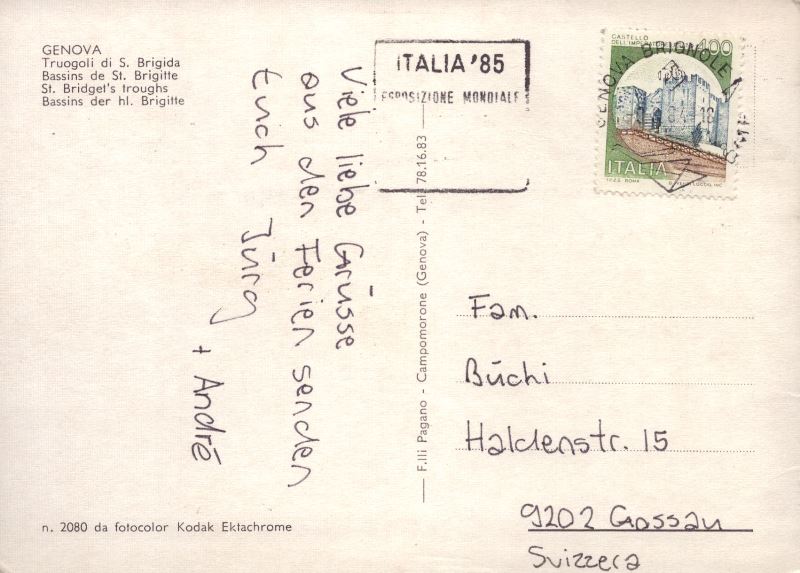 GENOVA
Truogoli di S. Brigida
Bassins de St. Brigitte
St. Bridget's troughs
Bassins der hl. Brigitte
Viele liebe Grüsse
aus den Ferien senden
Euch Jürg
+ André
n. 2080 da fotocolor Kodak Ektachrome
F.lli Pagano - Campomorone (Genova) - Tel. 78.16.83
ITALIA '85
ESPOSIZIONE MONDIALE
CASTELLO
DELL'IMPER
400
ITALIA
I.P.Z.S. ROMA
GENOVA BRIGNOLE
18
Fam.
Büchi
Haldenstr. 15
9202 Gossau
Svizzera